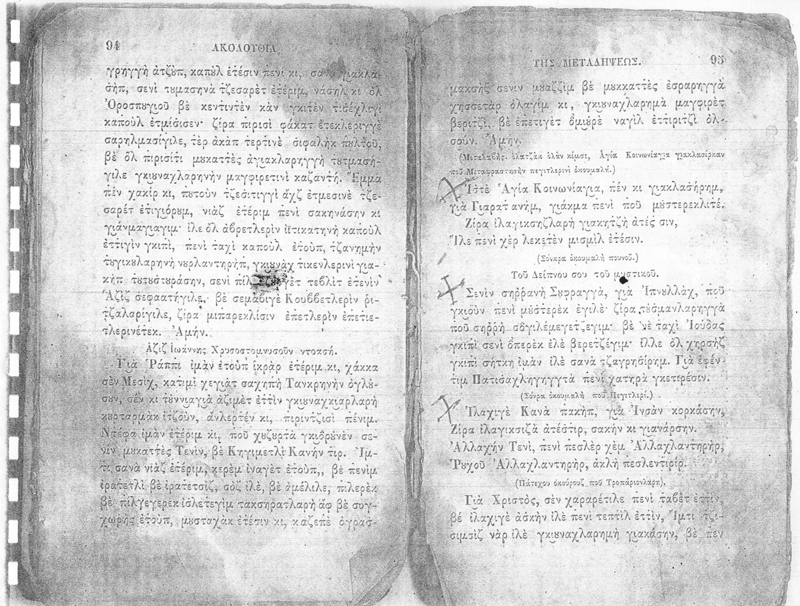 94 ΑΚΟΛΟΥΘΙΑ
γρηγγὴ ἀτζῆπ, καπoὺλ ἐτέσιν πενὶ κι,
σῆπ, σενὶ τυμασηνὰ τζεσαρὲτ ἐτέριμ, νάσηλ κι ὀλ
Ὀροσπουγιοῦ βὲ κεντιντὲν κὰν
καποὺλ ἐτμίσισεν· ζίρα πιρισὶ φάκατ ἐτεκλεριγγὲ
σαρηλμασίγιλε, τὲρ ἀκὰπ τερτινὲ σιφαλὴκ πουλτοῦ,
βὲ ὀλ πιρισίτι μουκαττὲς ἀγιακλαρηγγὴ τυτμασή-
γιλε γκιουναχλαρηνὴν μαγφιρετινὶ καζαντή. Ἔμμα
πὲν χακὶρ κι, πουτοὺν τζεσιτιγγὶ ἀχζ ἐτμεσινὲ τζε-
σαρὲτ ἐτιγιόρουμ, νιὰζ ἐτέριμ πενὶ σακηνάσην κι
γιάνμαγιαγιμ· ἰλὲ ὀλ ἀβρετλερὶν ἰστικατηνὴ καποὺλ
ἐττιγὶν γκιπὶ, πενὶ ταχὶ καποὺλ ἐτοὺπ, τζανημὴν
τυγικουλαρηνὴ νουρλαντηρὴπ, γκιουνὰχ τικενλερινὶ για-
κὴπ τυτουστυράσην, σενὶ τεβλὶτ ἐτενὶν
Ἀζὶζ σεφαατήγιλε, βὲ σεμαβιγὲ Κουββετλερὶν ρι-
τζαλαρίγιλε, ζίρα μπαρεκλίσιν ἐπετλερὶν ἐπετιε-
τλερινέτεκ. Ἀμήν.
Ἀζὶζ Ἰωάννης Χρυσοστομνουσοῦν ντοασή.
Γιὰ Ῥάππι ἰμὰν ἐτοὺπ ἰκρὰρ ἐτέριμ κι, χάκκα
σὲν Μεσὶχ, κατιμὶ χεγιὰτ σαχηπὴ Τανκρηνὴν ὀγλου-
σοῦν, σὲν κι τουνγιαγιὰ ἀζιμὲτ ἐττὶν γκιουναχκιαρλαρὴ
κουρταρμὰκ ἰτζοὺν, ἀνλερτὲν κι, πιριντζισὶ πένιμ.
Ντέφα ἰμὰν ἐτέριμ κι, ποὺ χυζυρτὰ γκιδρουνὲν σε-
νὶν μουκαττὲς Τενὶν, βὲ Κηγιμετλὶ Κανὴν τιρ. Ἴμ-
τι σανὰ νιὰζ ἐτέριμ, κερὲμ ἰναγὲτ ἐτοὺπ, βὲ πενὶμ
ἰρατετλὶ βὲ ἰρατετσὶζ, σὸζ ἰλὲ, βὲ ἀμέλιλε, πιλερὲκ
βὲ πιλγεγερὲκ ἰσλετεγὶμ τακσηρατλαρὴ ἀφ βὲ συγ-
χωρὴς ἐτοὺπ, μουσταχὰκ ἐτέσιν κι, κάζεπὲ ὀγρασ-
ΤΗΣ ΜΕΤΑΛΗΨΕΩΣ. 95
μακσὴζ σενὶν μουαζζὶμ βὲ μουκκαττὲς ἐσραρηγγὰ
χησσετὰρ ὀλαγὶμ κι, γκιουναχλαρημὰ μαγφιρὲτ
βεριτζὶ, βὲ ἐπετιγὲτ ὀμιουρὲ ναγὶλ ἐττιριτζὶ ὀλ-
σοῦν. Ἀμήν.
(Μεταλαβὴς ὀλατζὰκ ὀλὰν κίμσε, ἁγία Κοινωνίαγια γιακλασίρκαν
ποὺ Μεταφραστικὴν πεγιτλερινὶ ὀκουμαλή.)
Ἴστε Ἁγία Κοινωνίαγια, πὲν κι γιακλασήρημ,
γιὰ Γιαρατανὴμ, γιάκμα πενὶ ποὺ μυστερεκλιτέ.
Ζίρα ἰλαγικσηζλαρὴ γιακητζὴ ἀτὲς σιν,
Ἴλε πενὶ χὲρ λεκετὲν μισμὶλ ἐτέσιν.
(Σόνκρα ὀκουμαλὴ πουνοῦ.)
Τοῦ Δείπνου σου τοῦ μυστικοῦ.
Σενὶν σηρρανὴ Σουφραγγὰ, γιὰ Ἰπνουλλὰχ, ποὺ
γκιοὺν πενὶ μυστερὲκ ἐγιλέ· ζίρα τυσμανλαρηγγὰ
ποὺ σηρρὴ σδγιλέμεγετζεγιμ· βὲ νὲ ταχὶ Ἰούδας
γκιπὶ σενὶ ὀπερὲκ ἐλὲ βερετζέγιμ· ἴλλε ὀλ χηρσὴζ
γκιπὶ σήτκη ἰμὰν ἰλὲ σανὰ τζαγρησίρημ. Γιὰ ἐφέν-
τιμ Πατισαχληγηγγτὰ πενὶ χατηρὰ γκετιρέσιν.
(Σόνρα ὀκουμαλὴ ποὺ Πεγιτλερί.)
Ἰλαχιγὲ Κανὰ πακὴπ, γιὰ Ἰνσὰν κορκάσην,
Ζίρα ἰλαγικσιζὰ ἀτέστιρ, σακὴν κι γιανάρσην.
Ἀλλαχὴν Τενὶ, πενὶ πεσλὲρ χὲμ Ἀλλαχλαντηρὴρ,
Ῥυχοῦ Ἀλλαχλαντηρὴρ, ἀκλὴ πεσλεντιρίρ.
(Πάτεχου ὀκούρουζ ποὺ Τροπάριονλαρή.)
Γιὰ Χριστὸς, σὲν χαραρέτιλε πενὶ ταβὲτ ἐττὶν,
βὲ ἰλαχιγὲ ἀσκὴν ἰλὲ πενὶ τεπτὶλ ἐττὶν, Ἴμτι τζι-
σιμσὶζ νὰρ ἰλὲ γκιουναχλαρημὴ γιακάσην, βὲ πὲν